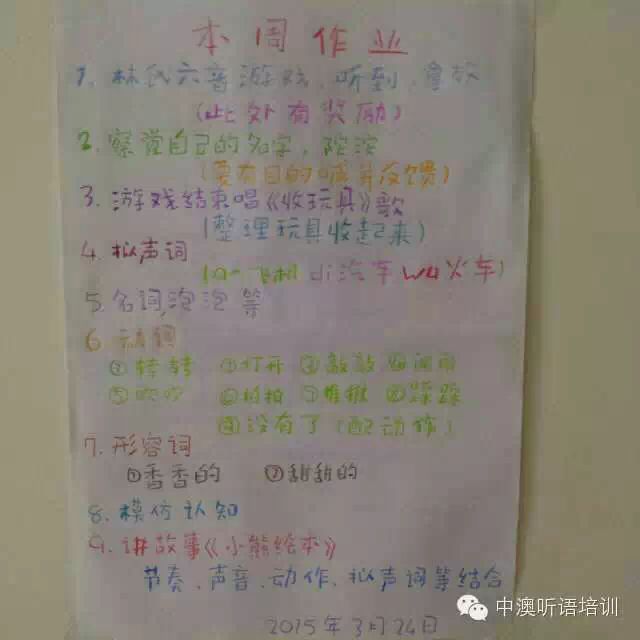 本周作业
1. 林氏六音游戏、听到、拿放
(此处有奖励)
2. 察觉自己的名字,
(要有目的喊并反馈)
3. 游戏结束唱《收玩具》歌
(整理玩具收起来)
4. 拟声词
(a~飞机 di汽车 wu火车)
5. 名词,泡泡等
6. 动词
①转转 ①打开 ③敲敲 ④闻闻
⑤吹吹 ⑥拍拍 ⑦推推 ⑧踩踩
⑨没有了(配动作)
7. 形容词
①香香的 ②甜甜的
8. 模仿认知
9. 讲故事《小熊绘本》
节奏、声音、动作、拟声词等结合
2015年3月26日
中澳听语培训